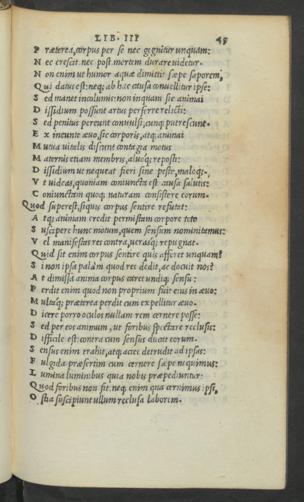 LIB. III 45
P ræterea, corpus per se nec gignitur unquam:
N ec crescit, nec post mortem durare uidetur.
N on enim ut humor aquæ dimittit sæpe saporem,
Q ui datus est: neq; ab hac causa conuellitur ipse:
S ed manet incolumis: non inquam sic animai
D issidium possunt artus perferre relicti:
S ed penitus pereunt conuulsi, cunq; putrescunt.
E x ineunte æuo, sic corporis, atq; animai
M utua uitalis discunt contagia motus
M aternis etiam membris, aluoq; reposti:
D issidium ut nequeat fieri sine peste, maloq;.
V t uideas, quoniam coniuncta est causa salutis:
C oniunctam quoq; naturam consistere eorum.
Quod superest, siquis corpus sentire refutat:
A tq; animam credit permistam corpore toto
S uscipere hunc motum, quem sensum nominitemus:
V el manifestas res contra, uerasq; repugnat.
Quid sit enim corpus sentire quis afferet unquam?
S i non ipsa palàm quod res dedit, ac docuit nos?
A t dimissa anima corpus caret undiq; sensu:
P erdit enim quod non proprium fuit eius in æuo:
M ultaq; præterea perdit cum expellitur æuo.
D icere porro oculos nullam rem cernere posse:
S ed per eos animum, ut foribus spectare reclusis:
D ifficile est: contra cum sensus ducat eorum.
S ensus enim trahit, atq; acies detrudit ad ipsas:
F ulgida præsertim cum cernere sæpe nequimus:
L umina luminibus quia nobis præpediuntur:
Quod foribus non fit. neq; enim qua cernimus ipsi,
O stia suscipiunt ullum reclusa laborem.